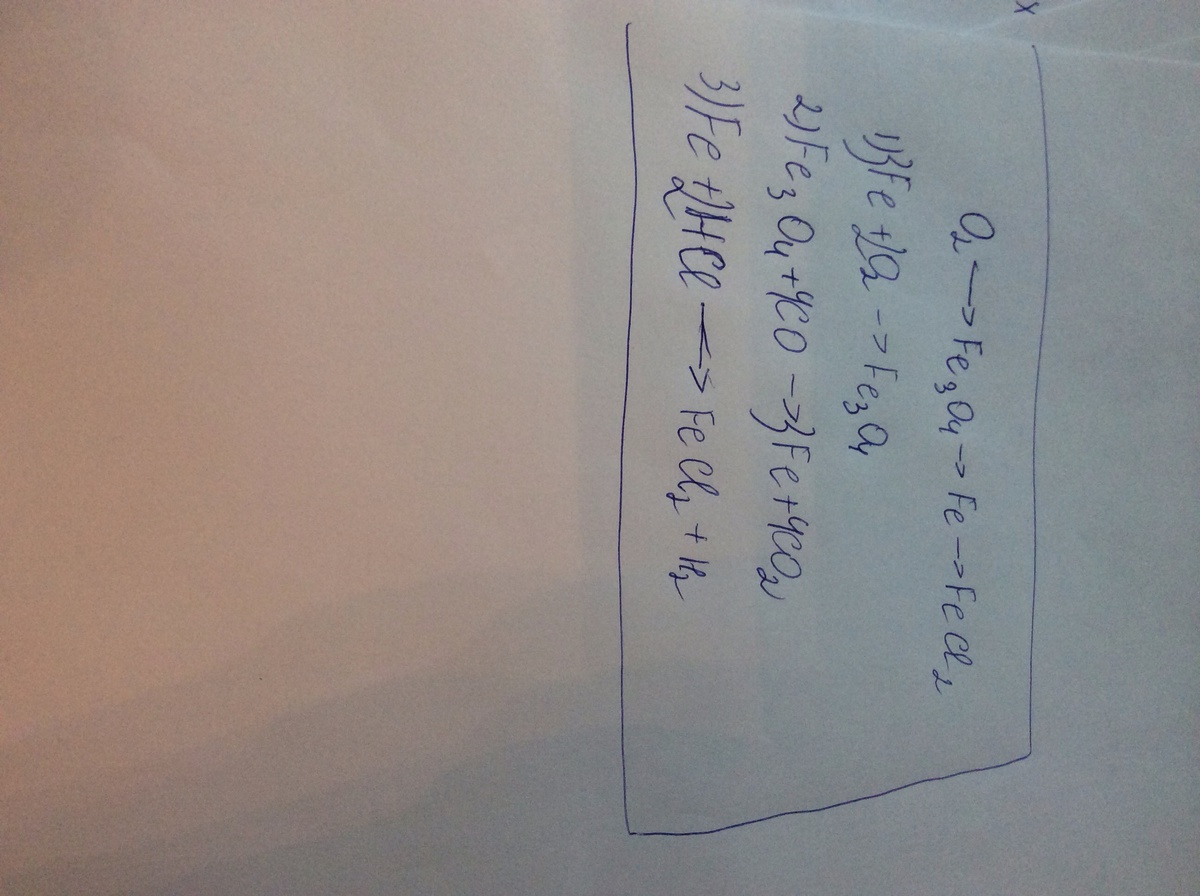 x
O₂ → Fe₃O₄ → Fe → FeCl₂
1) 3Fe + 2O₂ → Fe₃O₄
2) Fe₃O₄ + 4CO → 3Fe + 4CO₂
3) Fe + 2HCl → FeCl₂ + H₂